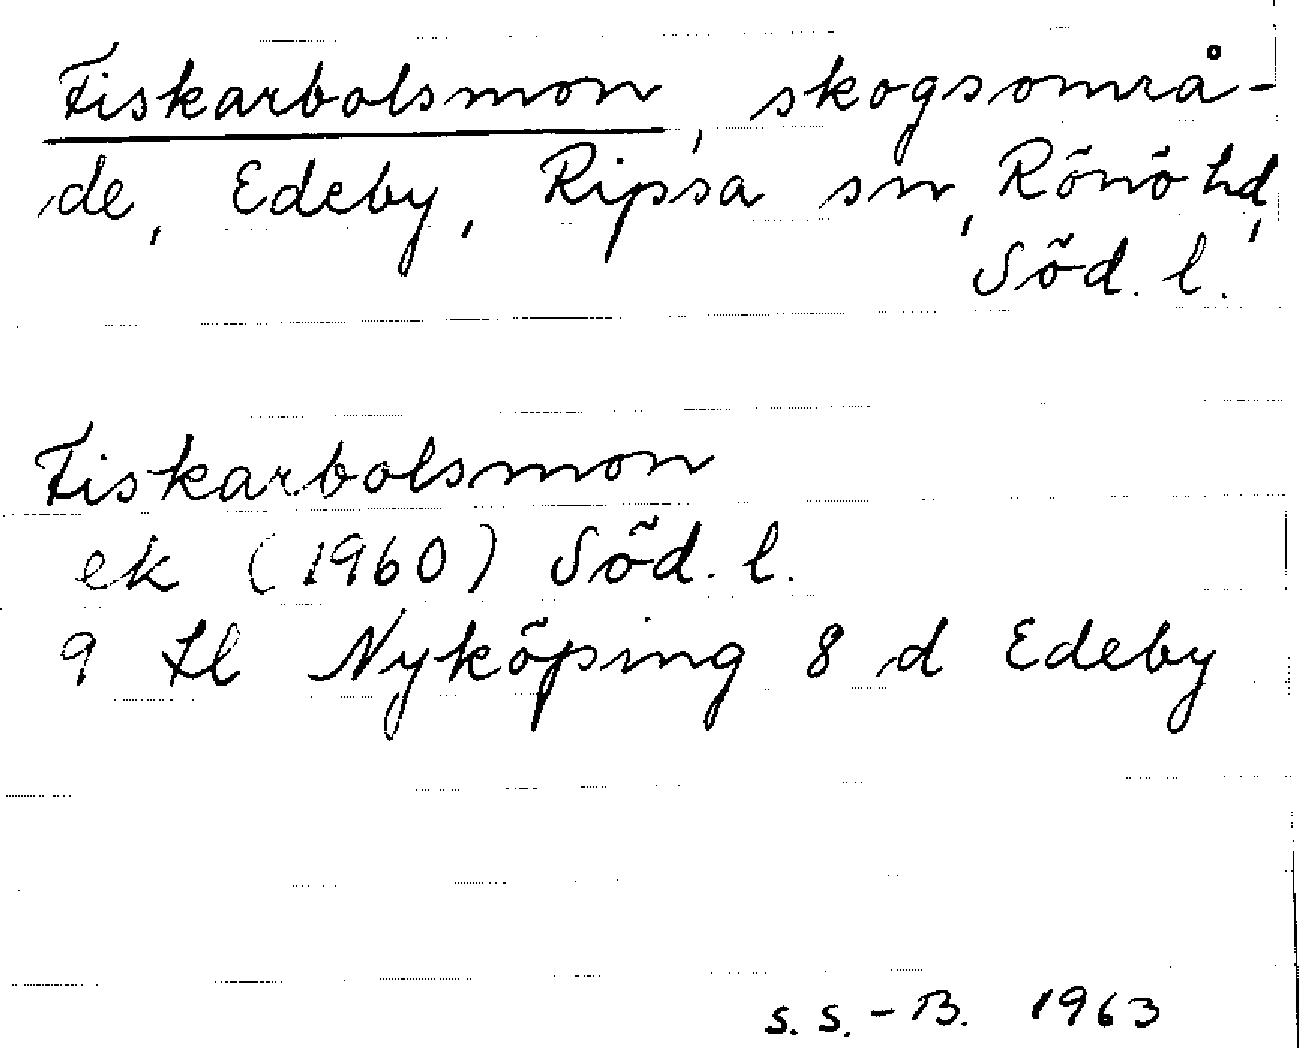 Fiskarbolsmon, skogsområ-
de, Edeby, Ripsa sn, Rönö hd,
Söd. l.
Fiskarbolsmon
ek (1960) Söd. l.
9 Nyköping 8 d Edeby
S. S. - B. 1963